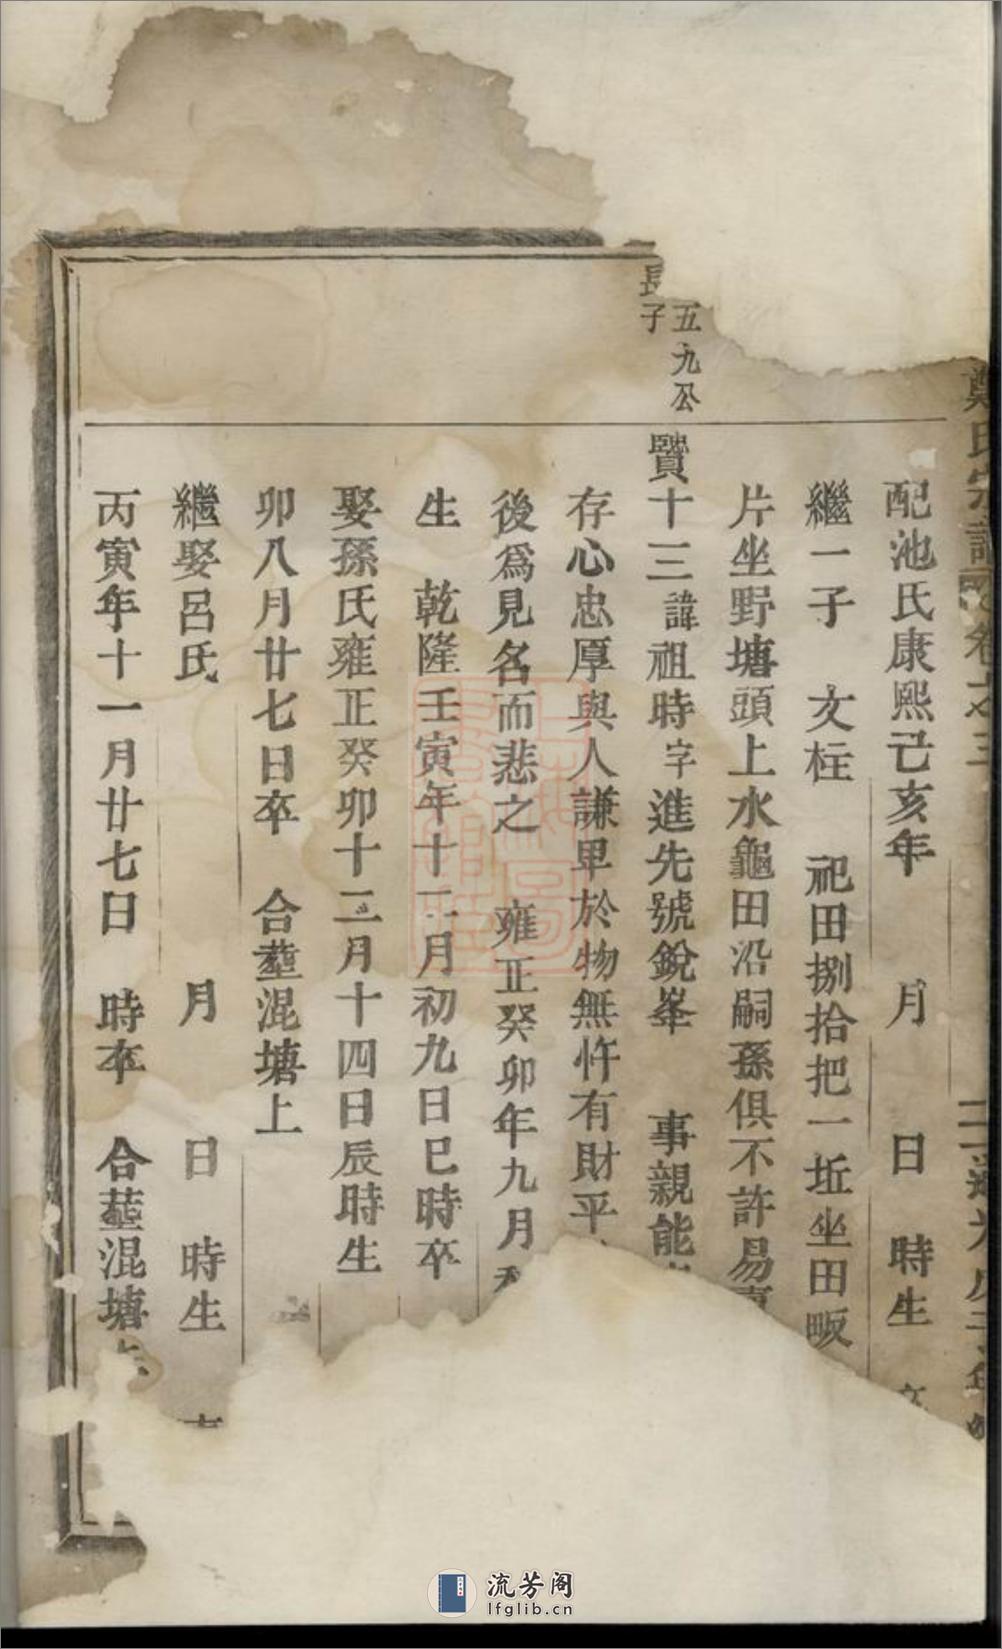 鄭氏宗譜 卷之三
配池氏康熙己亥年 月 日 時生
繼一子 文枉 祀田捌拾把一坵坐田畈
片坐野塘頭上水龜田沿嗣孫俱不許易賣
五九公
長子
贒十三諱祖時字進先號銳峯 事親能
存心忠厚與人謙卑於物無忤有財平
後為見名而悲之 雍正癸卯年九月
生 乾隆壬寅年十二月初九日巳時卒
娶孫氏雍正癸卯十二月十四日辰時生
卯八月廿七日卒 合塟混塘上
繼娶呂氏 月 日 時生
丙寅年十一月廿七日 時卒 合塟混塘
流芳阁
lfglib.cn